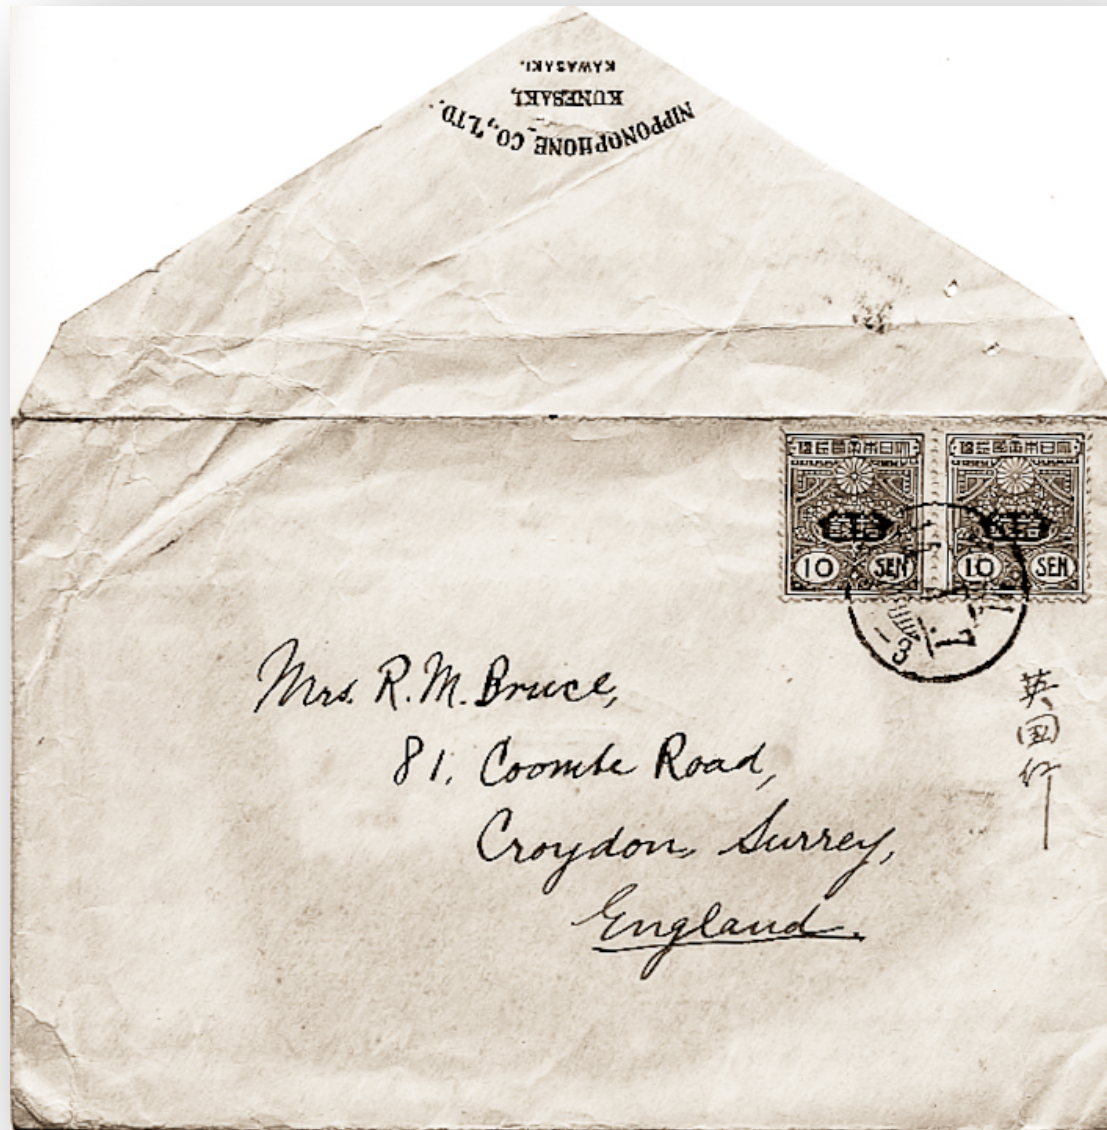 NIPPONOPHONE CO., LTD.
KUNESAKI,
KAWASAKI.
大日本帝國郵便
拾銭
10 SEN
大日本帝國郵便
拾銭
10 SEN
Mrs. R. M. Bruce,
81, Coombe Road,
Croydon, Surrey,
England.
英国行